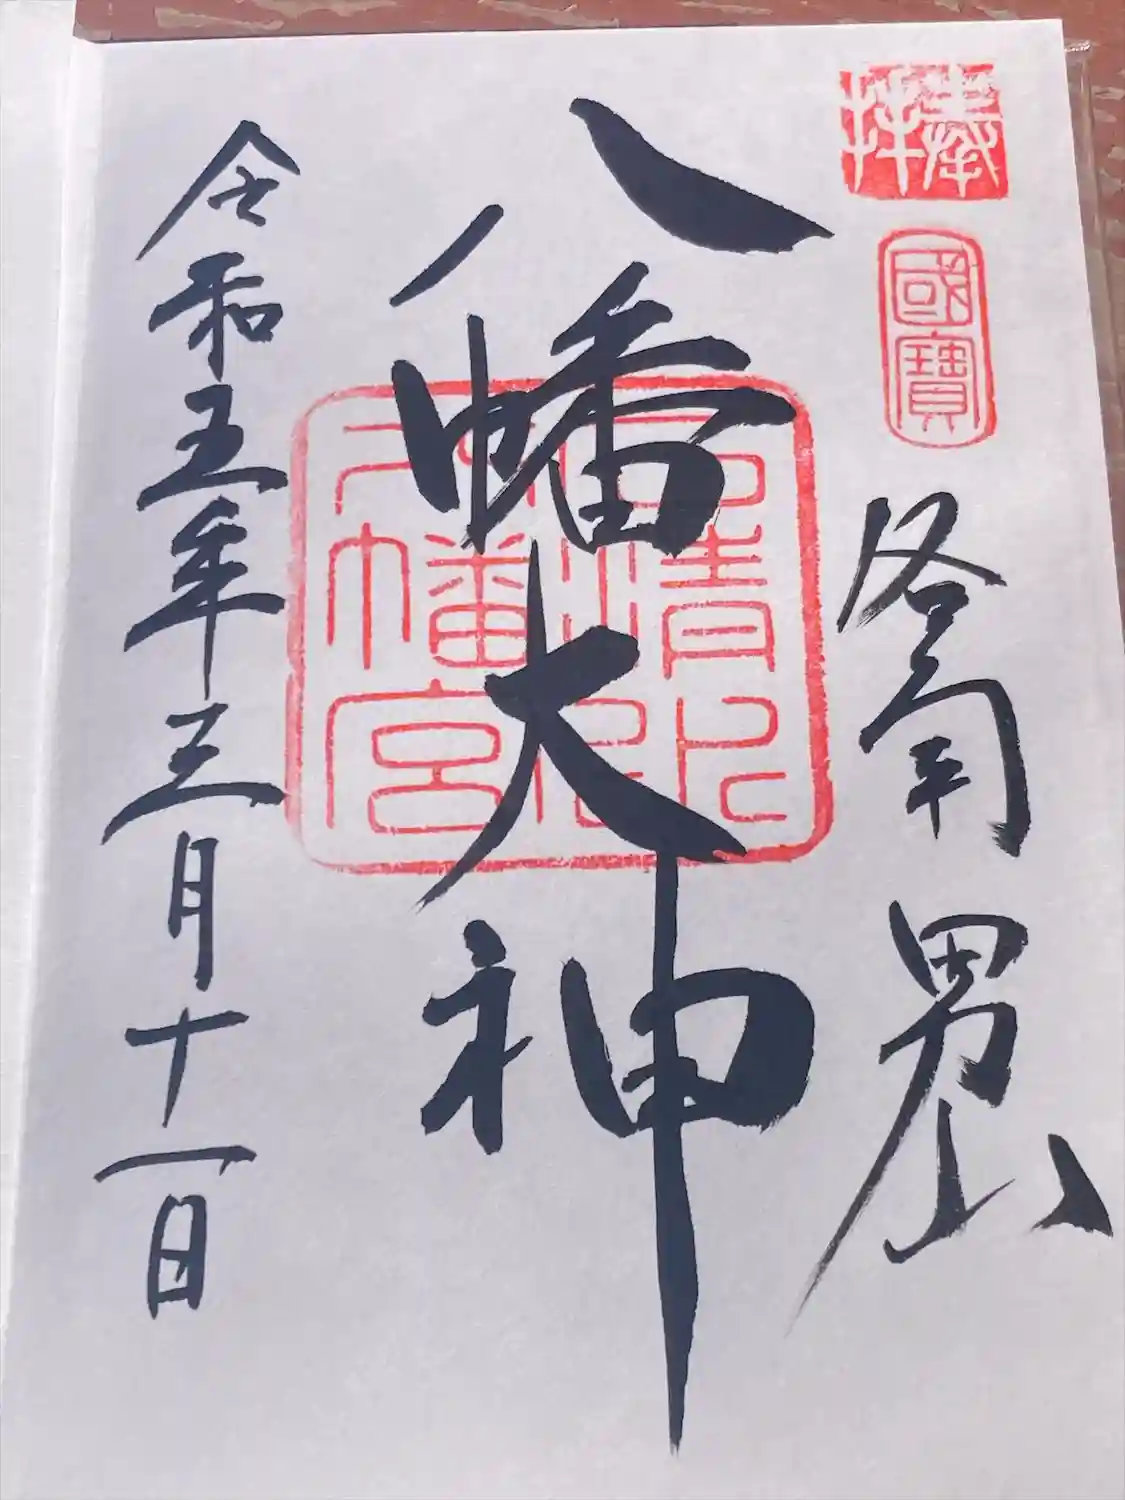 奉拝
國寶
洛南 男山
八幡大神
八幡宮
令和五年三月十一日